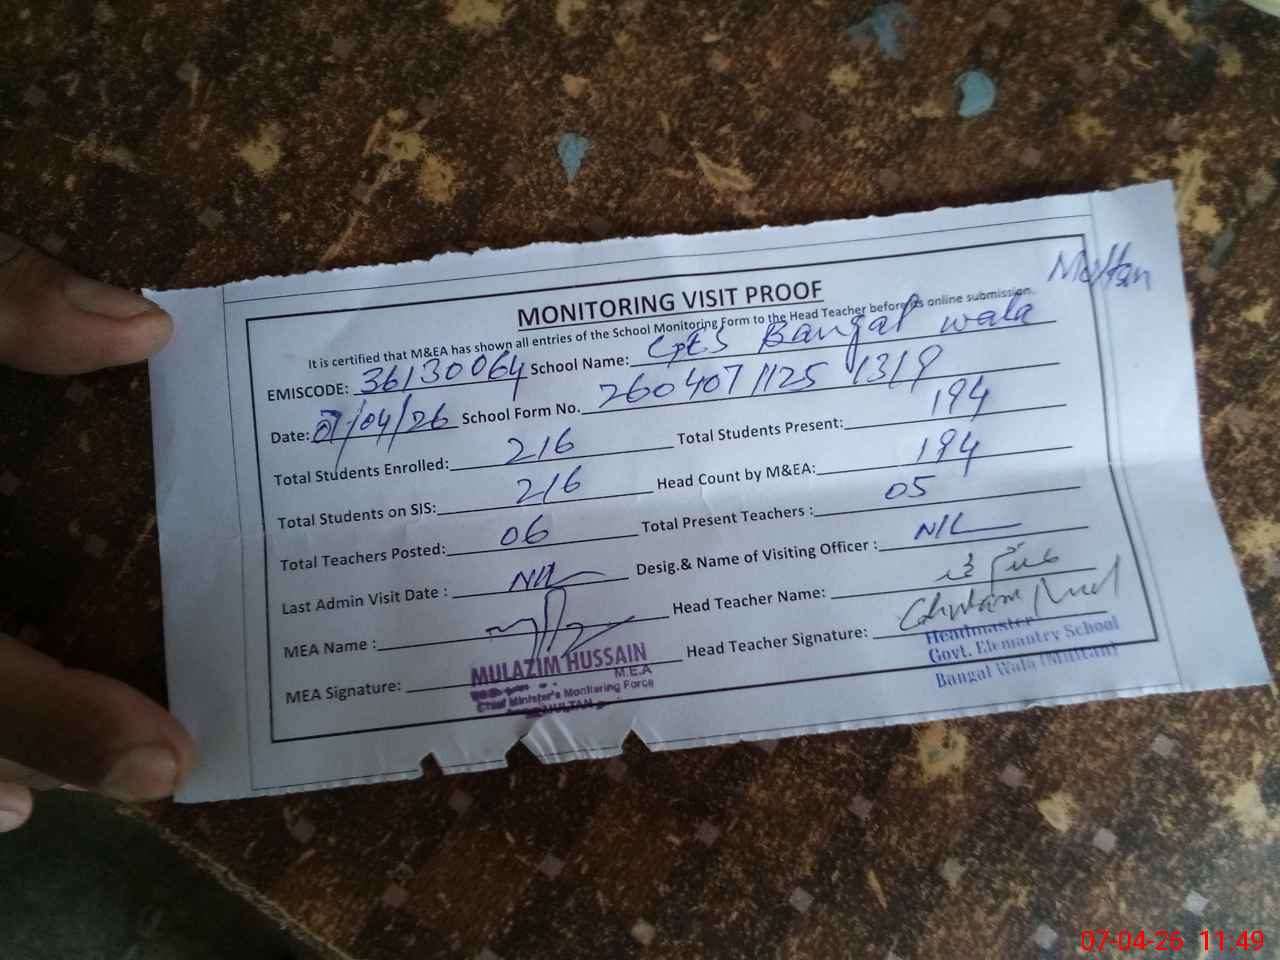 MONITORING VISIT PROOF
It is certified that M&EA has shown all entries of the School Monitoring Form to the Head Teacher before its online submission.
Multan
EMISCODE: 36130064 School Name: GES Bangal wala
Date: 07/04/26 School Form No. 26040711251319
Total Students Enrolled: 216 Total Students Present: 194
Total Students on SIS: 216 Head Count by M&EA: 194
Total Teachers Posted: 06 Total Present Teachers : 05
Last Admin Visit Date : NIL Desig.& Name of Visiting Officer : NIL
MEA Name : Head Teacher Name:
MEA Signature: Head Teacher Signature:
MULAZIM HUSSAIN
M.E.A
Chief Minister's Monitoring Force
MULTAN
Headmaster
Govt. Elemantry School
Bangal Wala (Multan)
07-04-26 11:49